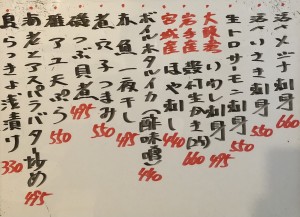 活〆メジナ刺身 660
活べいさき刺身 550
生トロサーモン刺身 495
大船産いわし刺身 550
岩手産殻付生かき(2ヶ) 660
宮城産ほや刺し 440
ボイルホタルイカ(酢味噌) 440
赤魚一夜干し 495
煮穴子つまみ 550
磯つぶ貝煮 495
稚アユ天ぷら 550
海老とアスパラバター炒め 495
島らっきょ浅漬け 330